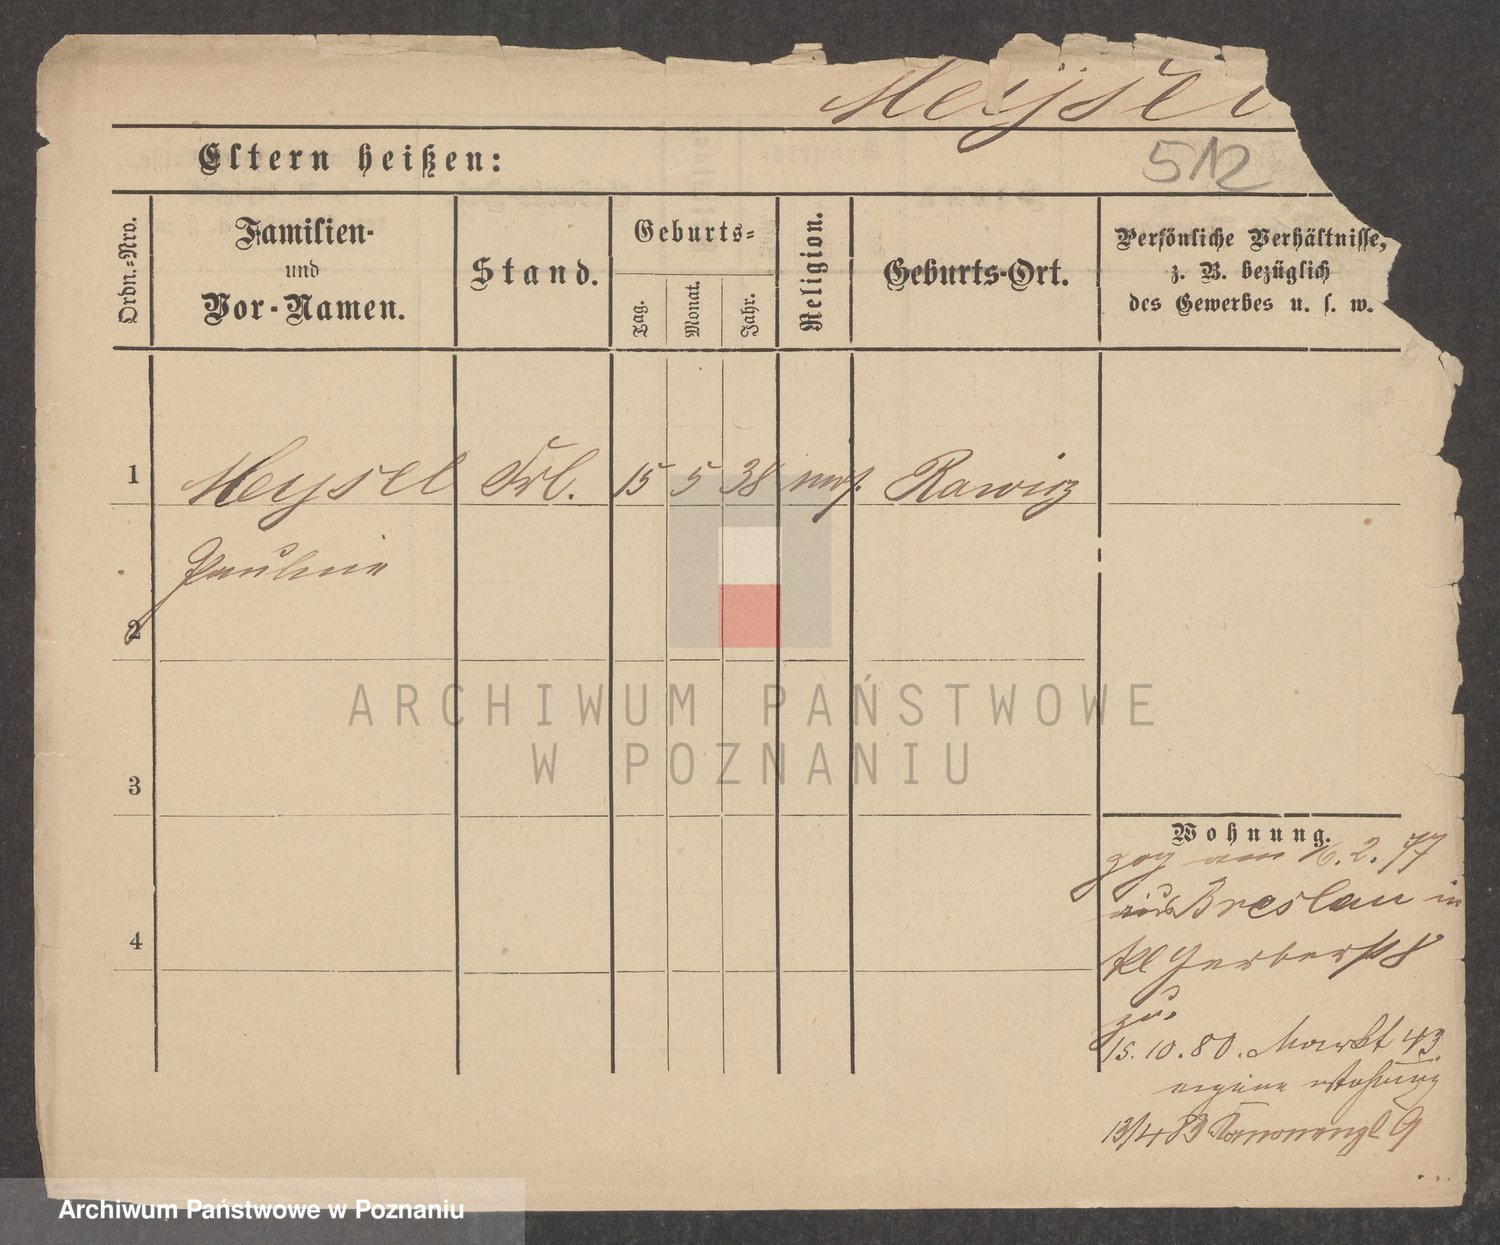 Meysel
512
Eltern heißen:
Ordn.-Nro.
Familien-
und
Vor-Namen.
Stand.
Geburts-
Tag.
Monat.
Jahr.
Religion.
Geburts-Ort.
Persönliche Verhältnisse,
z. B. bezüglich
des Gewerbes u. s. w.
1 Meysel Frl. 15 5 38 mos. Rawicz
Pauline
2
3
4
Wohnung.
zog am 16.2.77
aus Breslau in
Kl Gerberst 8
zu.
15.10.80. Markt 43.
eigene Wohnung
13/4 83 Kanonenpl 9
ARCHIWUM PAŃSTWOWE
W POZNANIU
Archiwum Państwowe w Poznaniu